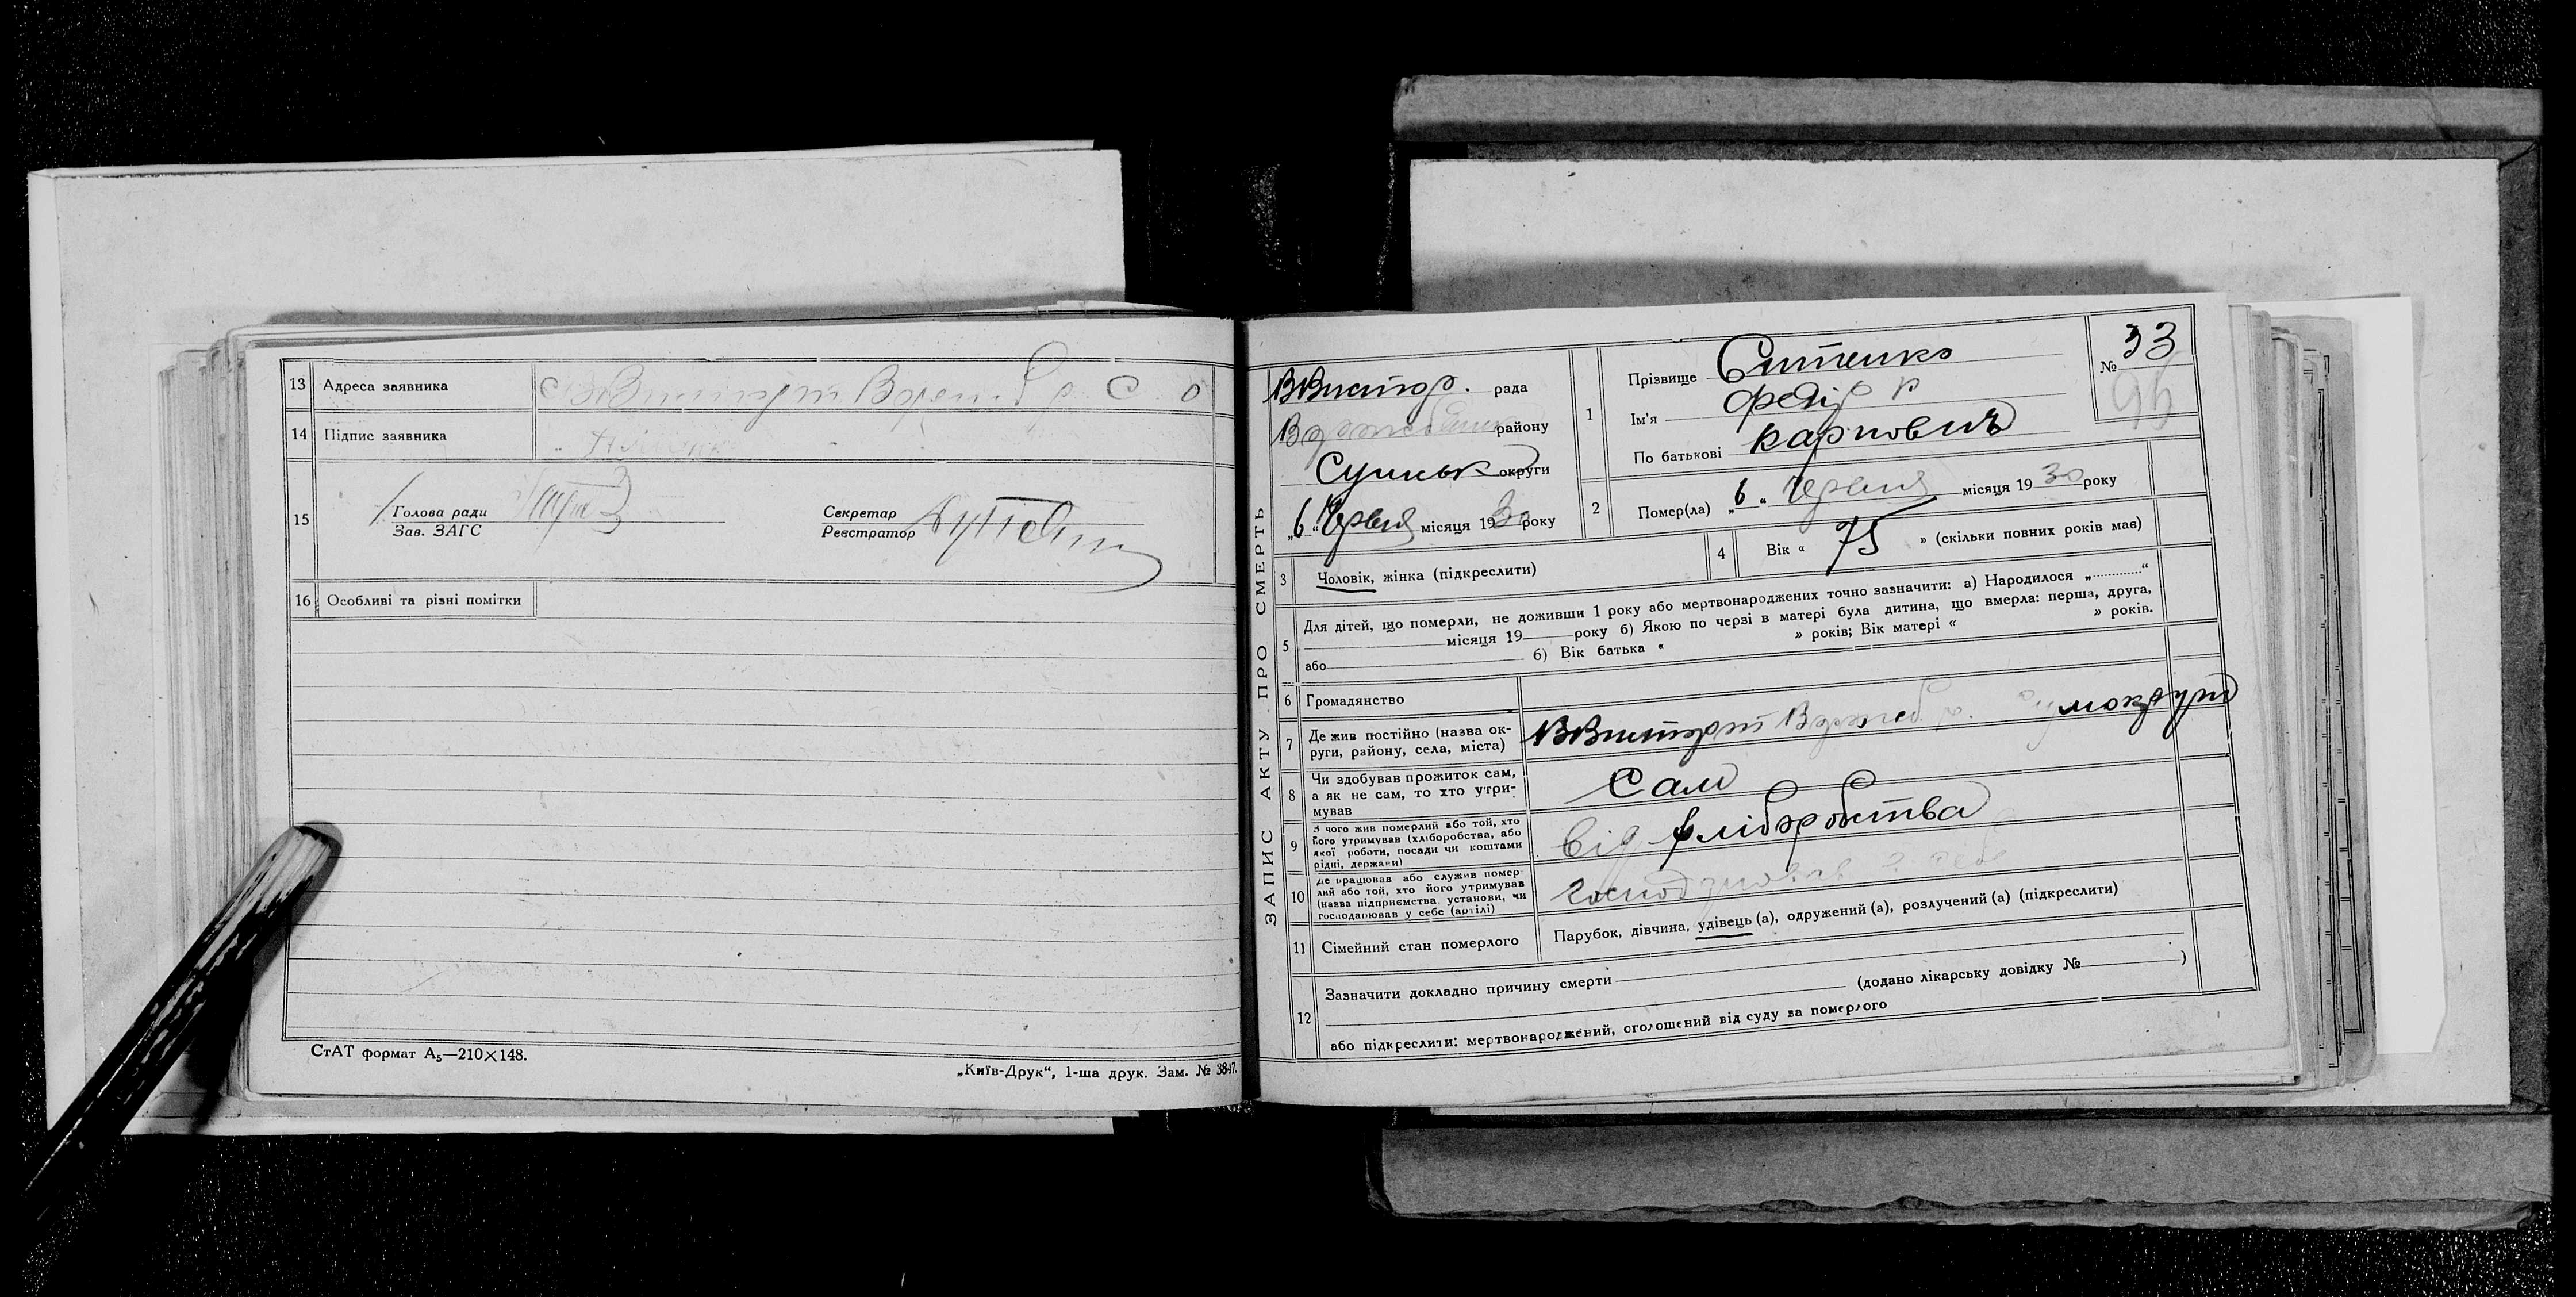 13 Адреса заявника
14 Підпис заявника
15 Голова ради
Зав. ЗАГС
Секретар
Реєстратор
16 Особливі та різні помітки
СтАТ формат А₅—210×148.
„Київ-Друк“, 1-ша друк. Зам. № 3847.
ЗАПИС АКТУ ПРО СМЕРТЬ
ВВистор. рада
району
Сумськ округи
„6“ Червня місяця 1930 року
1 Прізвище Ситенко
Ім'я Федір
По батькові Карпович
№ 33
95
2 Помер(ла) „6“ Червня місяця 1930 року
3 Чоловік, жінка (підкреслити)
4 Вік « 75 » (скільки повних років має)
5 Для дітей, що померли, не доживши 1 року або мертвонароджених точно зазначити: а) Народилося „............“
місяця 19 року б) Якою по черзі в матері була дитина, що вмерла: перша, друга,
або б) Вік батька « » років; Вік матері « » років.
6 Громадянство
7 Де жив постійно (назва ок-
руги, району, села, міста)
8 Чи здобував прожиток сам,
а як не сам, то хто утри-
мував
Сам
9 З чого жив померлий або той, хто
його утримував (хліборобства, або
якої роботи, посади чи коштами
рідні, держави)
Від хліборобства
10 Де працював або служив помер-
лий або той, хто його утримував
(назва підприємства, установи, чи
господарював у себе (артілі)
11 Сімейний стан померлого
Парубок, дівчина, удівець (а), одружений (а), розлучений (а) (підкреслити)
12 Зазначити докладно причину смерти
(додано лікарську довідку № )
або підкреслити: мертвонароджений, оголошений від суду за померлого